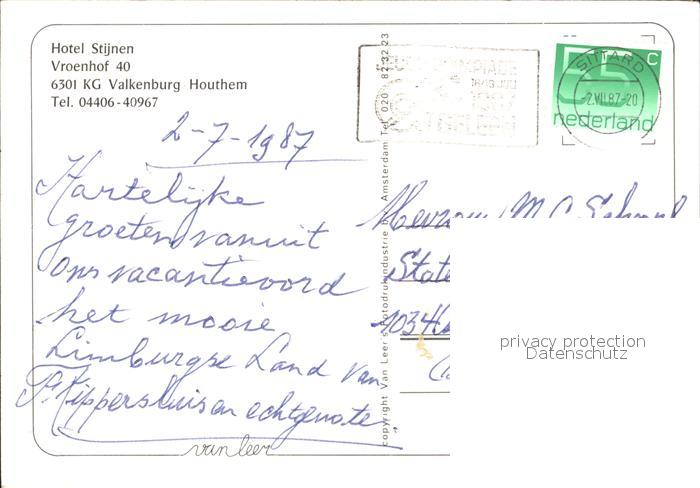 Hotel Stijnen
Vroenhof 40
6301 KG Valkenburg Houthem
Tel. 04406-40967
2-7-1987
Hartelijke
groeten vanuit
ons vacantieoord
het mooie
Limburgse Land van
Kippersluis en echtgenote.
van leer
copyright Van Leer's Fotodrukindustrie Amsterdam Tel. 020 82 32 23
1987
SITTARD
-2.VII.87-20
55 C
nederland
Mevrouw M.C.
State
1034
privacy protection
Datenschutz